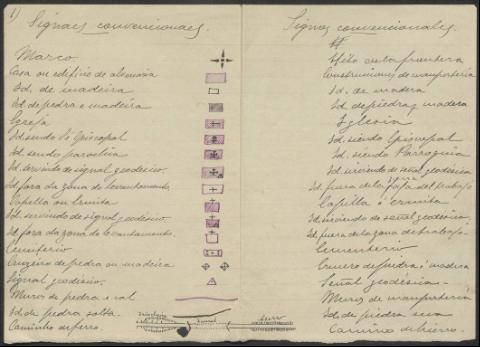 1)
Signaes convencionaes.
Marco
Casa ou edificio de alvenaria
Id. de madeira
Id. de pedra e madeira
Egreja
Id. sendo Sé Episcopal
Id. sendo parochia
Id. servindo de signal geodesico.
Id. fora da zona do levantamento.
Capella ou Ermita
Id. servindo de signal geodesico
Id. fora da zona do levantamento.
Cemiterio
Cruzeiro de pedra ou madeira
Signal geodesico.
Muros de pedra e cal
Id. de pedra solta.
Caminho de ferro
Signos convencionales.
Hito en la frontera
Construcciones de mamposteria
Id. de madera
Id. de piedra y madera
Iglesia
Id. siendo Episcopal
Id. siendo Parroquia
Id. sirviendo de señal geodesica
Id. fuera de la zona del trabajo
Capilla i ermita
Id. sirviendo de señal geodesica.
Id. fuera de la zona de trabajo.
Cementerio
Crucero de piedra i madera
Señal geodesica
Muros de mamposteria
Id. de piedra
Camino de hierro.